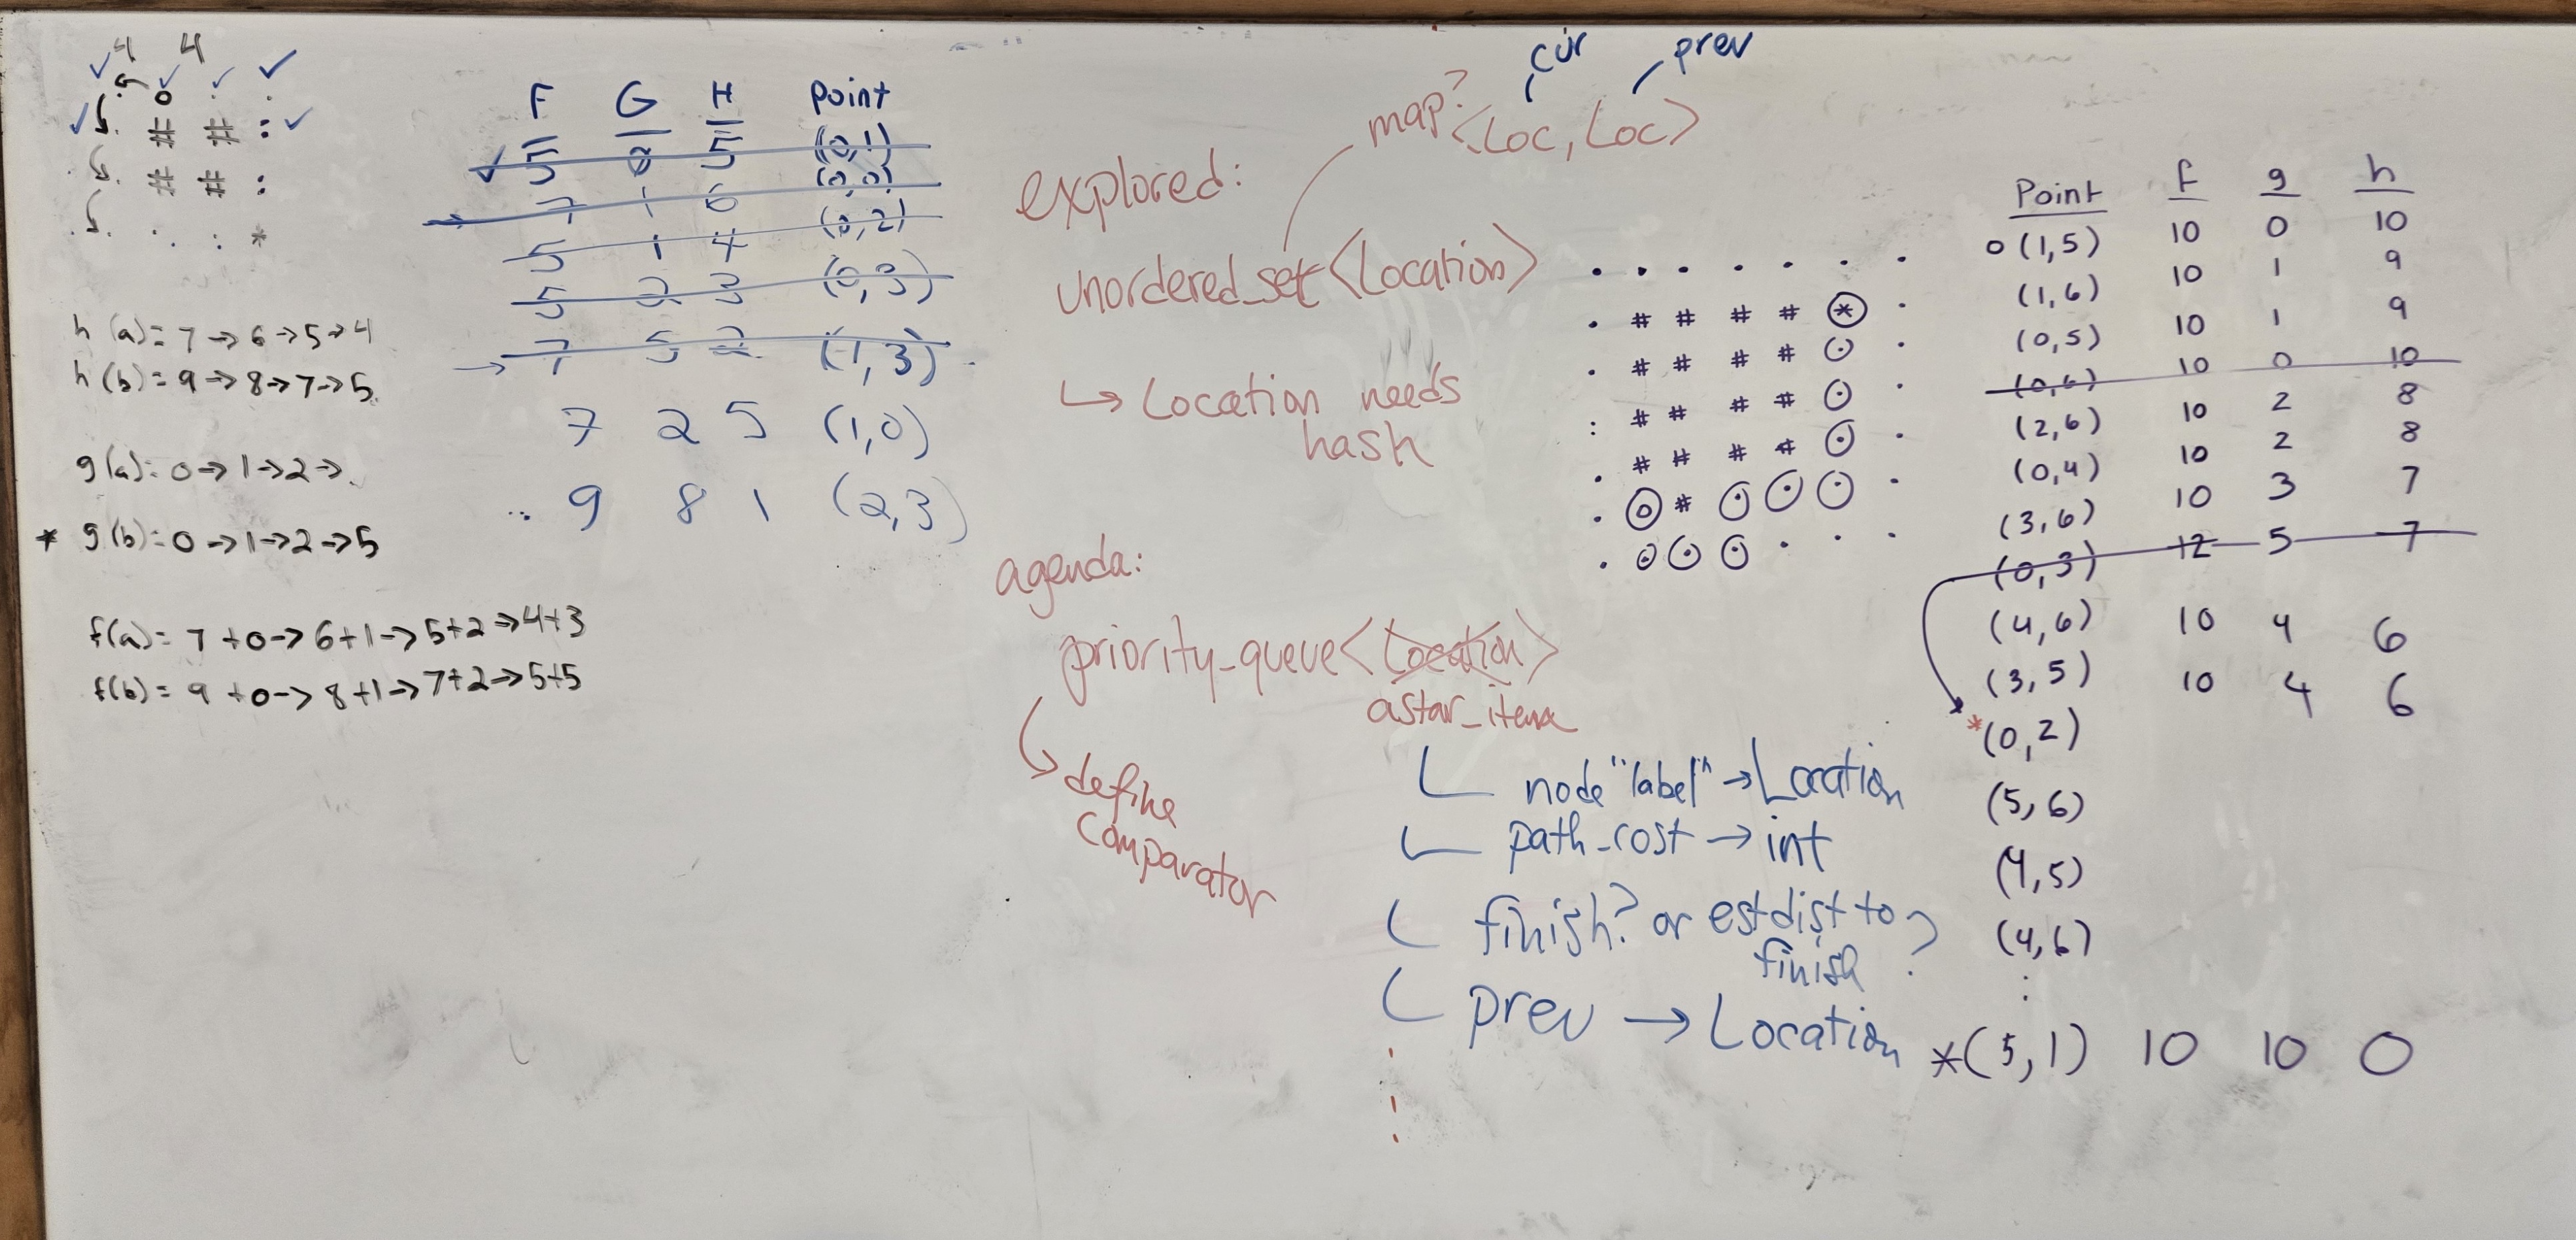 4 4
o . .
. # # :
. # # :
. . : *
h(a)= 7 → 6 → 5 → 4
h(b)= 9 → 8 → 7 → 5
g(a): 0 → 1 → 2 → .
* g(b): 0 → 1 → 2 → 5
f(a)= 7+0 → 6+1 → 5+2 → 4+3
f(b)= 9+0 → 8+1 → 7+2 → 5+5
F G H Point
5 0 5 (0,1)
7 1 6 (0,0)
5 1 4 (0,2)
5 2 3 (0,3)
7 5 2 (1,3)
7 2 5 (1,0)
9 8 1 (2,3)
cur prev
map? <Loc, Loc>
explored:
unordered_set<Location>
↳ Location needs
hash
agenda:
priority_queue<Location>
astar_item
define
comparator
node "label" → Location
path_cost → int
finish? or est dist to
finish ?
prev → Location
. . . . . . .
. # # # # * .
. # # # # . .
: # # # # . .
. # # # # . .
. o # . . . .
. . . . . . .
Point f g h
o (1,5) 10 0 10
(1,6) 10 1 9
(0,5) 10 1 9
(0,6) 10 0 10
(2,6) 10 2 8
(0,4) 10 2 8
(3,6) 10 3 7
(0,3) 12 5 7
(4,6) 10 4 6
(3,5) 10 4 6
*(0,2)
(5,6)
(4,5)
(4,6)
:
*(5,1) 10 10 0